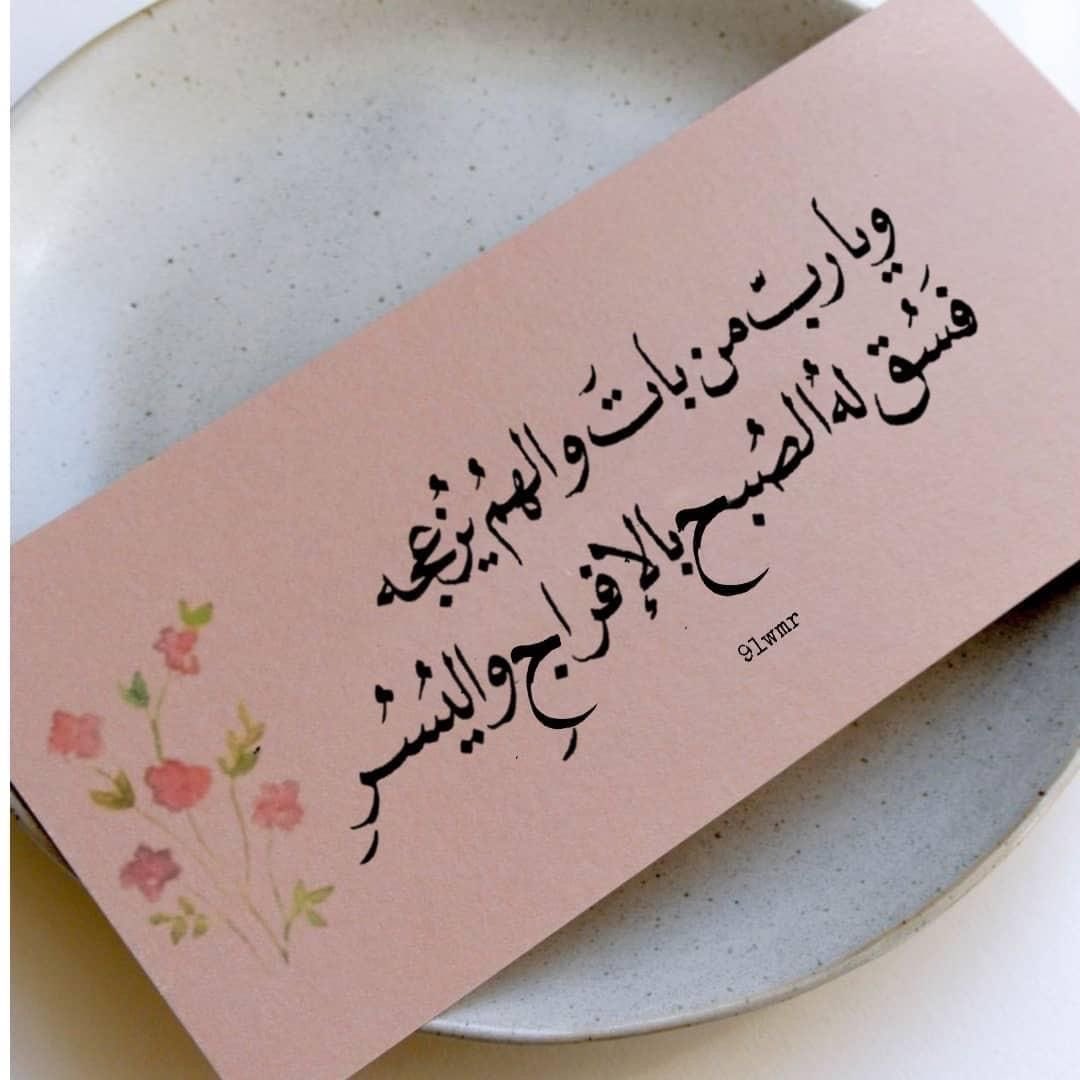 ويا ربّ من باتَ والهمُ يُزعُجه
فَسُق لهُ الصُبح بالإفراجِ واليُسُرِ
91wmr